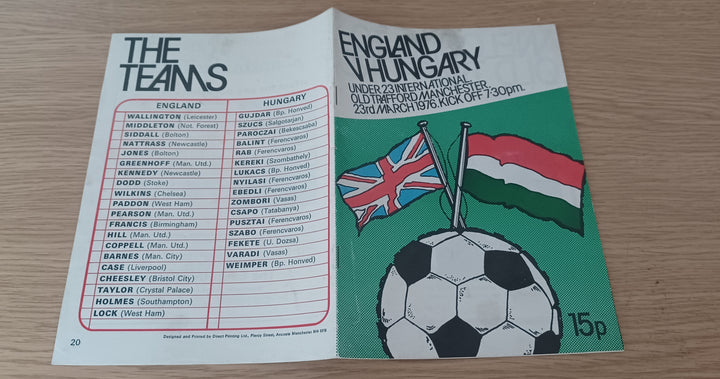 THE
TEAMS
ENGLAND
WALLINGTON (Leicester)
MIDDLETON (Not. Forest)
SIDDALL (Bolton)
NATTRASS (Newcastle)
JONES (Bolton)
GREENHOFF (Man. Utd.)
KENNEDY (Newcastle)
DODD (Stoke)
WILKINS (Chelsea)
PADDON (West Ham)
PEARSON (Man. Utd.)
FRANCIS (Birmingham)
HILL (Man. Utd.)
COPPELL (Man. Utd.)
BARNES (Man. City)
CASE (Liverpool)
CHEESLEY (Bristol City)
TAYLOR (Crystal Palace)
HOLMES (Southampton)
LOCK (West Ham)
HUNGARY
GUJDAR (Bp. Honved)
SZUCS (Salgotarjan)
PAROCZAI (Bekescsaba)
BALINT (Ferencvaros)
RAB (Ferencvaros)
KEREKI (Szombathely)
LUKACS (Bp. Honved)
NYILASI (Ferencvaros)
EBEDLI (Ferencvaros)
ZOMBORI (Vasas)
CSAPO (Tatabanya)
PUSZTAI (Ferencvaros)
SZABO (Ferencvaros)
FEKETE (U. Dozsa)
VARADI (Vasas)
WEIMPER (Bp. Honved)
20
Designed and Printed by Direct Printing Ltd., Pincy Street, Ancoats Manchester M4
ENGLAND
V HUNGARY
UNDER 23 INTERNATIONAL
OLD TRAFFORD MANCHESTER
23rd MARCH 1976. KICK OFF 7·30pm.
15p